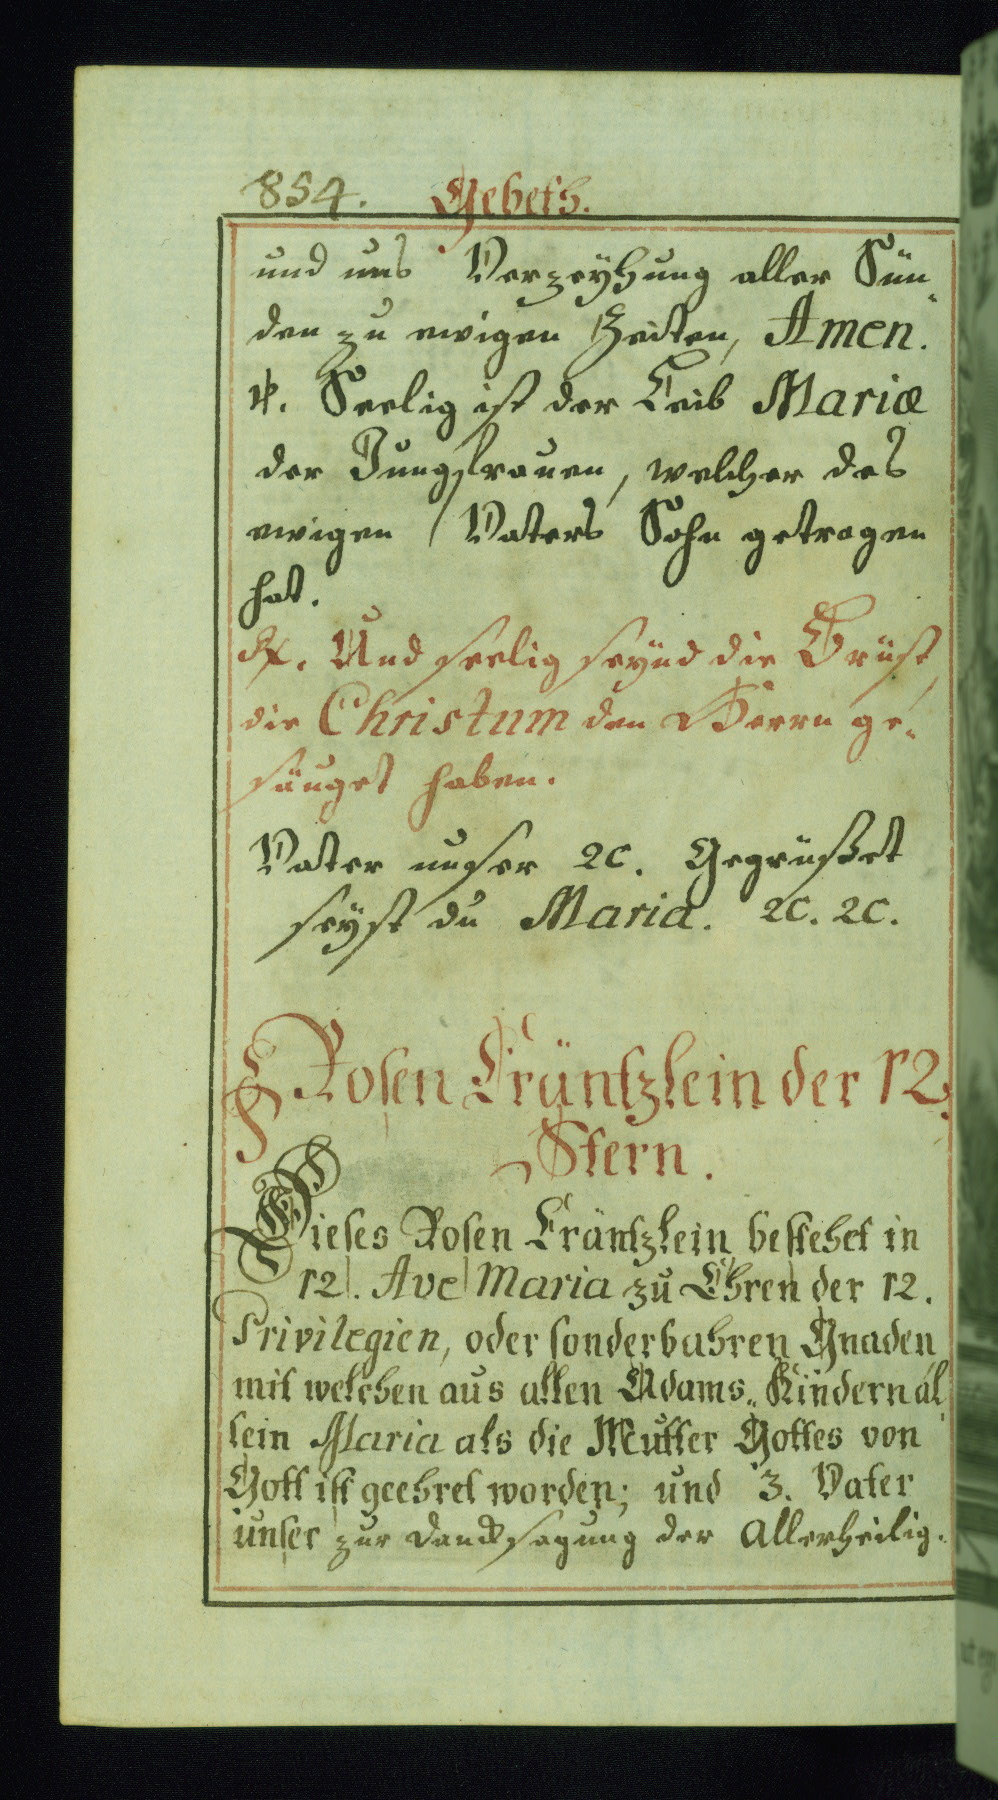 854. Gebeth.
und uns Verzeÿhung aller Sün-
den zu ewigen Zeiten, Amen.
℣. Seelig ist der Leib Mariæ
der Jungfrauen, welcher des
ewigen Vaters Sohn getragen
hat.
℟. Und seelig seÿnd die Brüst,
die Christum den Herrn ge-
säuget haben.
Vater unser ꝛc. Gegrüßet
seÿst du Maria. ꝛc. ꝛc.
Rosen Cräntzlein der 12.
Stern.
Dieses Rosen Cräntzlein bestehet in
12. Ave Maria zu Ehren der 12.
Privilegien, oder sonderbahren Gnaden
mit welchen aus allen Adams-Kindern al-
lein Maria als die Mutter Gottes von
Gott ist geehret worden; und 3. Vater
unser zur Dancksagung der Allerheilig-